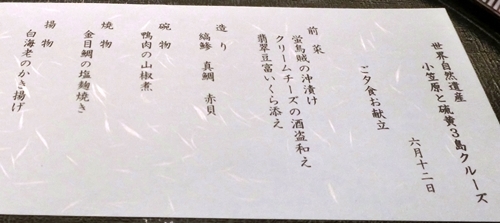 世界自然遺産
小笠原と硫黄3島クルーズ
六月十二日
ご夕食お献立
前菜
蛍烏賊の沖漬け
クリームチーズの酒盗和え
翡翠豆富いくら添え
造り
縞鯵 真鯛 赤貝
碗物
鴨肉の山椒煮
焼物
金目鯛の塩麹焼き
揚物
白海老のかき揚げ